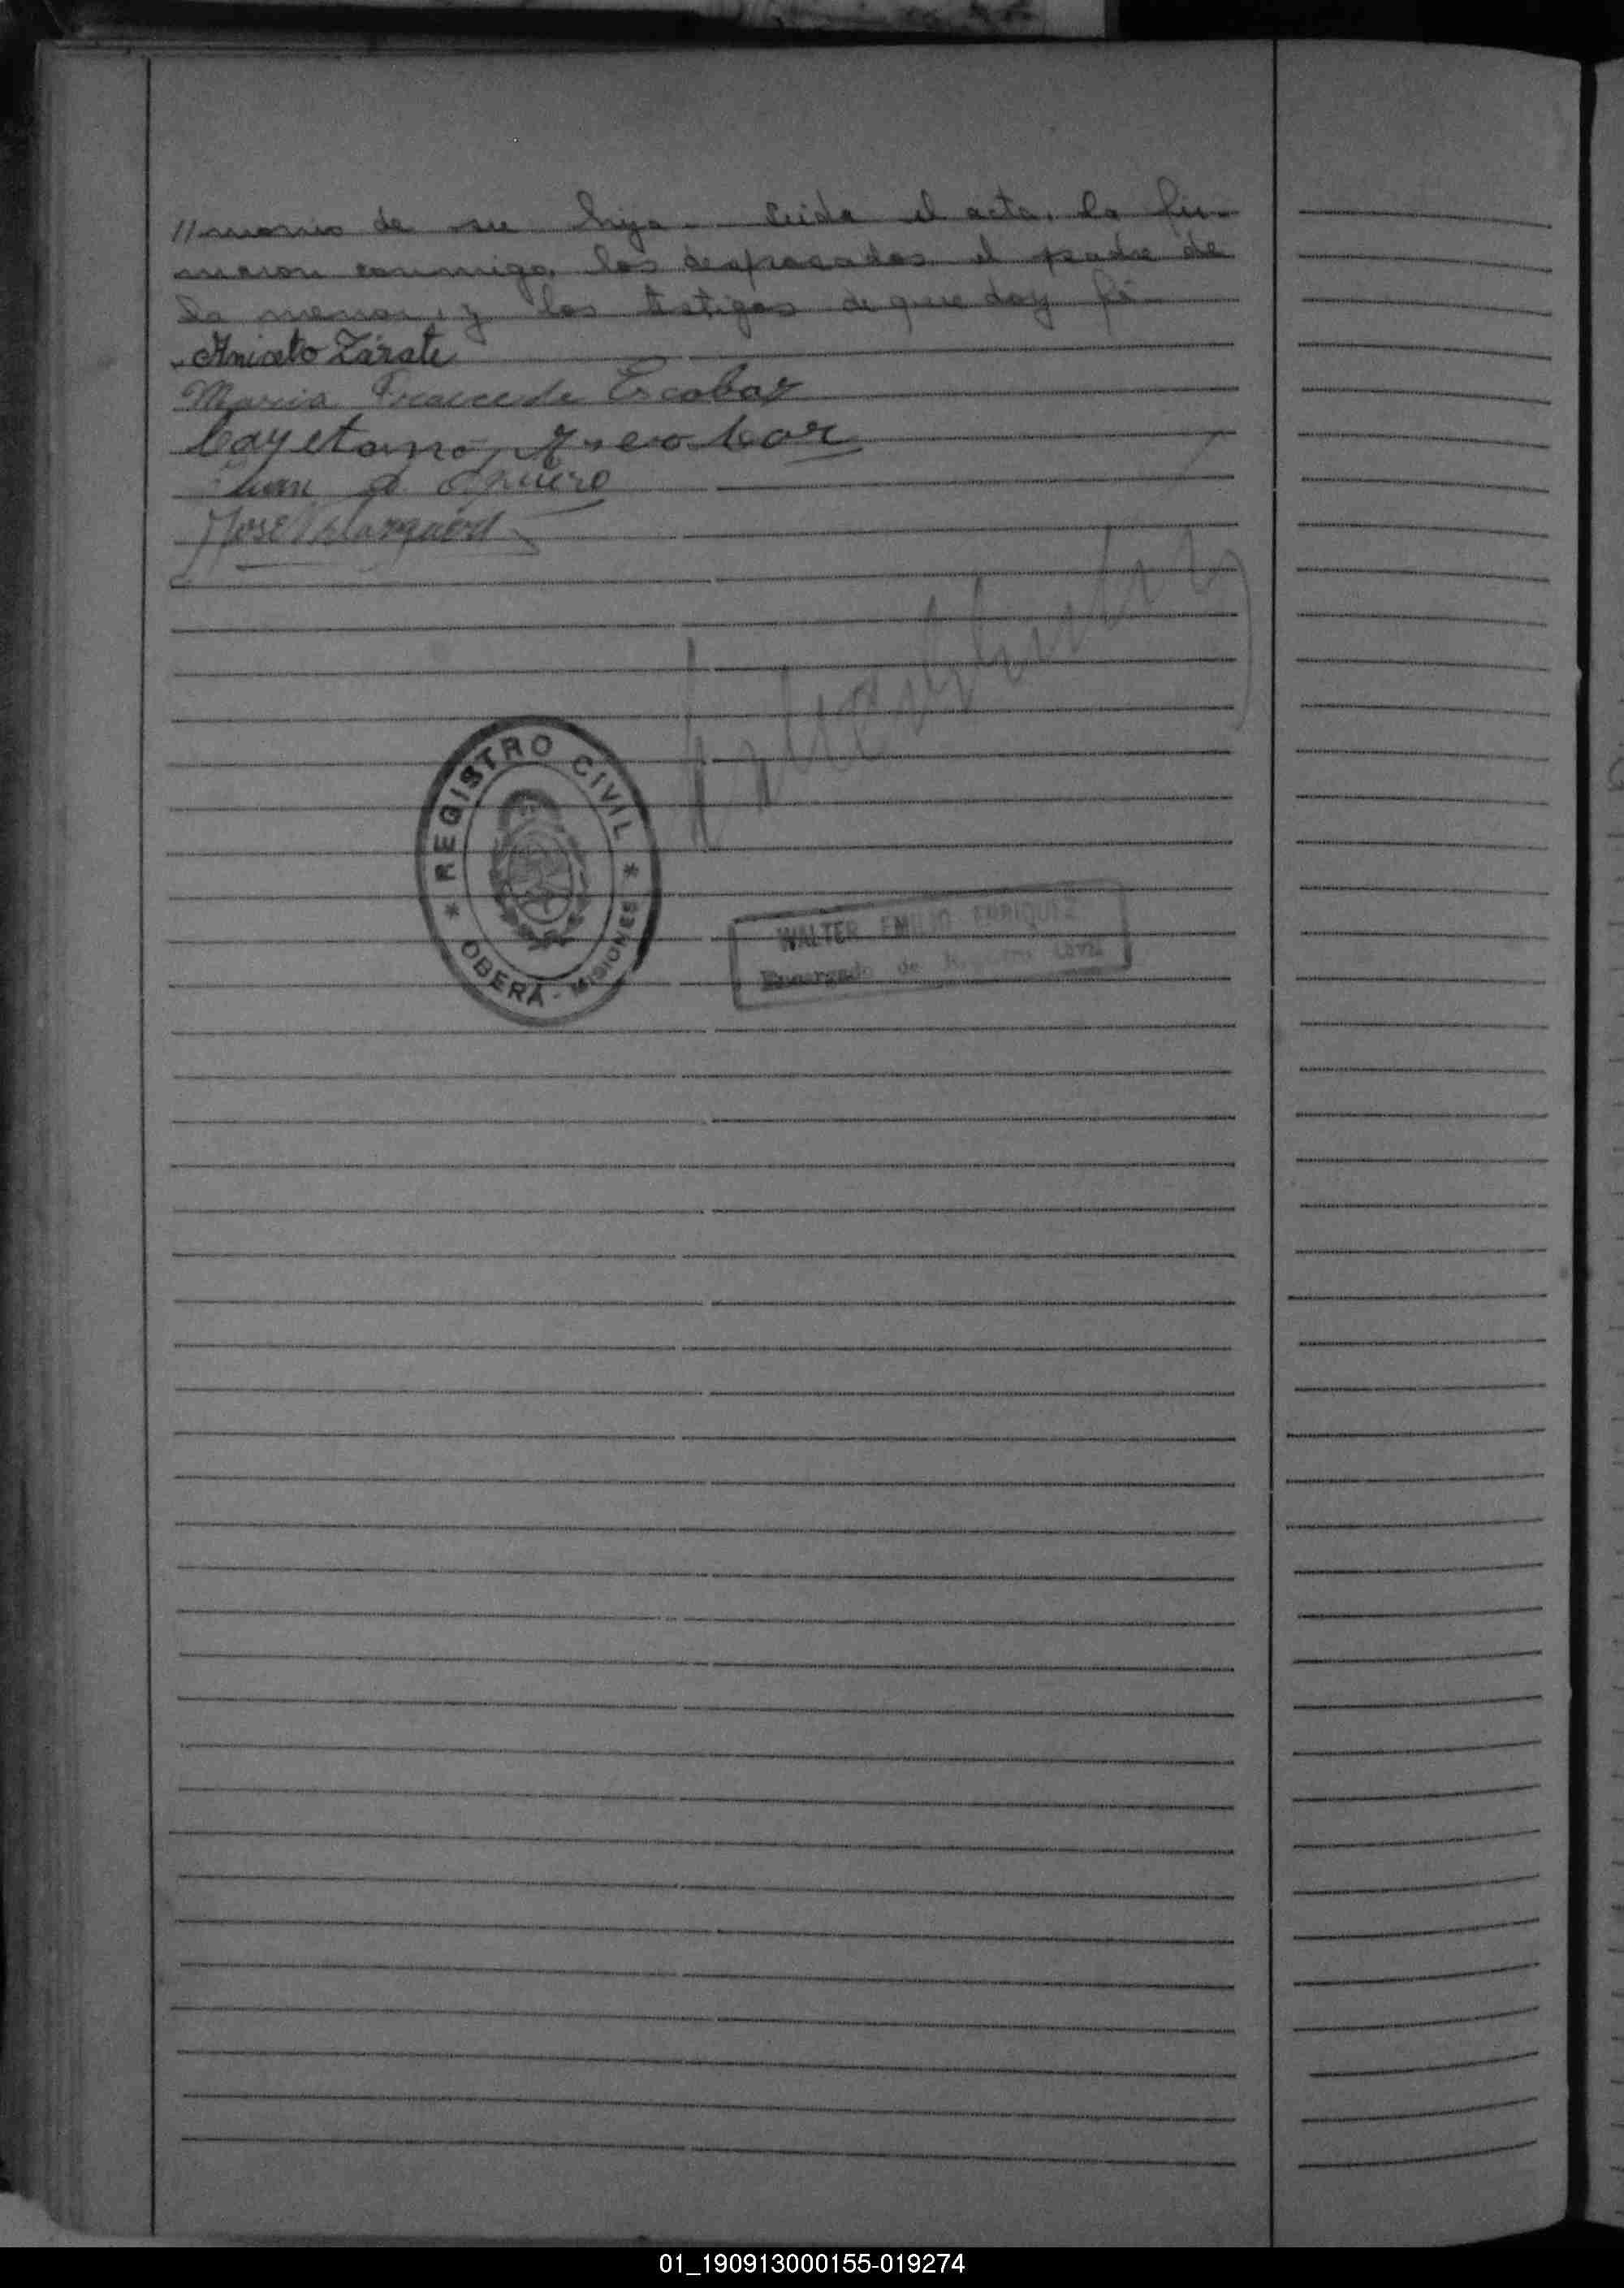 //monio de su hija. Leida el acta, la fir-
maron conmigo, los desposados el padre de
la menor, y los testigos de que doy fé.
Aniceto Zárate
Maria Escobar
Cayetano, Escobar
Juan
José
REGISTRO CIVIL
OBERÁ - MISIONES
WALTER EMILIO ENRIQUEZ
Encargado de Registro Civil
01_190913000155-019274